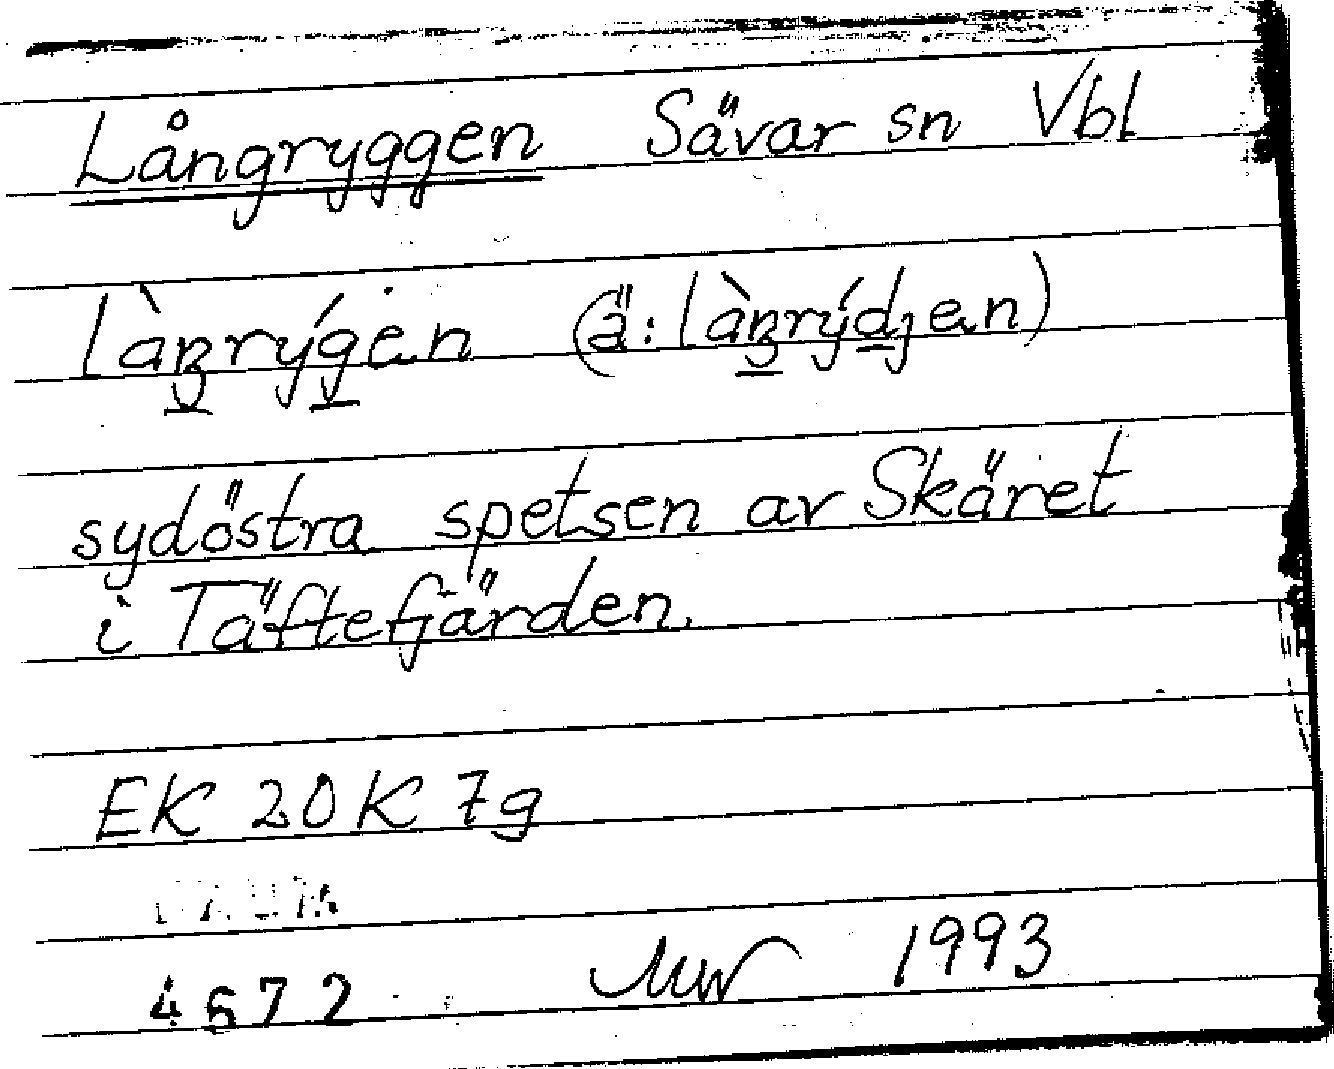 Långryggen Sävar sn Vbl
làŋrýgen (ä: làŋrýdjen)
sydöstra spetsen av Skäret
i Täftefjärden.
EK 20K 7g
4672 1993